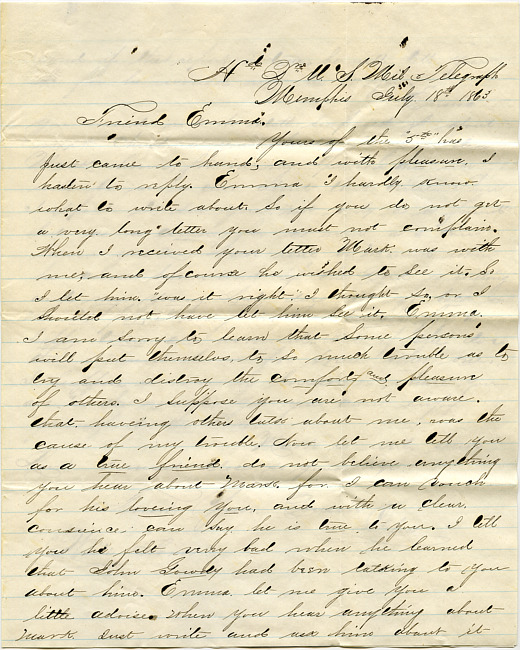 Hd Qrs U. S. Mil. Telegraph
Memphis July 18th 1863
Friend Emma.
Yours of the "5th" has
just came to hand, and with pleasure, I
hasten to reply. Emma I hardly know
what to write about. So if you do not get
a very long letter you must not complain.
When I received your letter Mark was with
me, and of course he wished to see it. So
I let him. was it right. I thought so, or I
should not have let him see it. Emma.
I am sorry to learn that some persons
will put themselves, to so much trouble as to
try and distroy the comforts and pleasure
of others. I suppose you are not aware.
that. haveing others talk about me, was the
cause of my trouble. Now let me tell you
as a true friend. do not believe anything
you hear about Mark. for I can vouch
for his loveing you, and with a clear
consience can say he is true to you. I tell
you he felt very bad when he learned
that John Gowdy had been talking to you
about him. Emma let me give you a
little advise. when you hear anything about
Mark. Just write and ask him about it